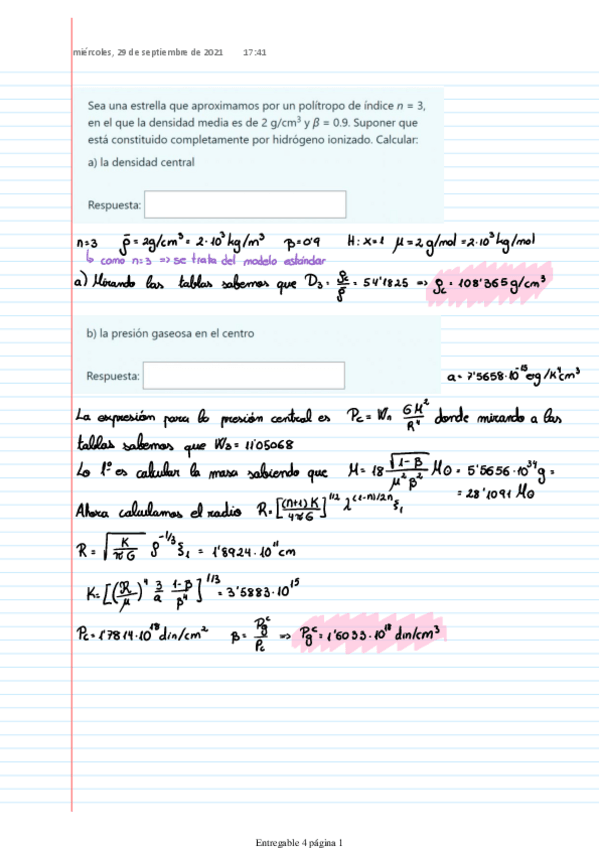 miércoles, 29 de septiembre de 2021 17:41
Sea una estrella que aproximamos por un polítropo de índice n = 3,
en el que la densidad media es de 2 g/cm³ y β = 0.9. Suponer que
está constituido completamente por hidrógeno ionizado. Calcular:
a) la densidad central
Respuesta:
n=3 ρ̄ = 2g/cm³ = 2·10³ kg/m³ β=0'9 H: X=1 μ=2 g/mol=2·10³ kg/mol
↳ como n=3 => se trata del modelo estándar
a) Mirando las tablas sabemos que D₃ = ρc/ρ̄ = 54'1825 => ρc = 108'365 g/cm³
b) la presión gaseosa en el centro
Respuesta:
a = 7'5658·10⁻¹⁵ erg/K⁴cm³
La expresión para la presión central es Pc = Wn GM²/R⁴ donde mirando a las
tablas sabemos que W₃ = 11'05068
Lo 1º es calcular la masa sabiendo que M = 18 √(1-β)/(μ²β²) M⊙ = 5'5656·10³⁴ g =
= 28'1091 M⊙
Ahora calculamos el radio R = [(n+1)K/4πG]^1/2 λ^(1-n)/2n ξ₁
R = √(K/πG) ρ^-1/3 ξ₁ = 1'8924·10¹¹ cm
K = [(ℛ/μ)⁴ 3/a (1-β)/β⁴]^1/3 = 3'5883·10¹⁵
Pc = 1'7814·10¹⁸ din/cm² β = Pgᶜ/Pc => Pgᶜ = 1'6033·10¹⁸ din/cm³
Entregable 4 página 1